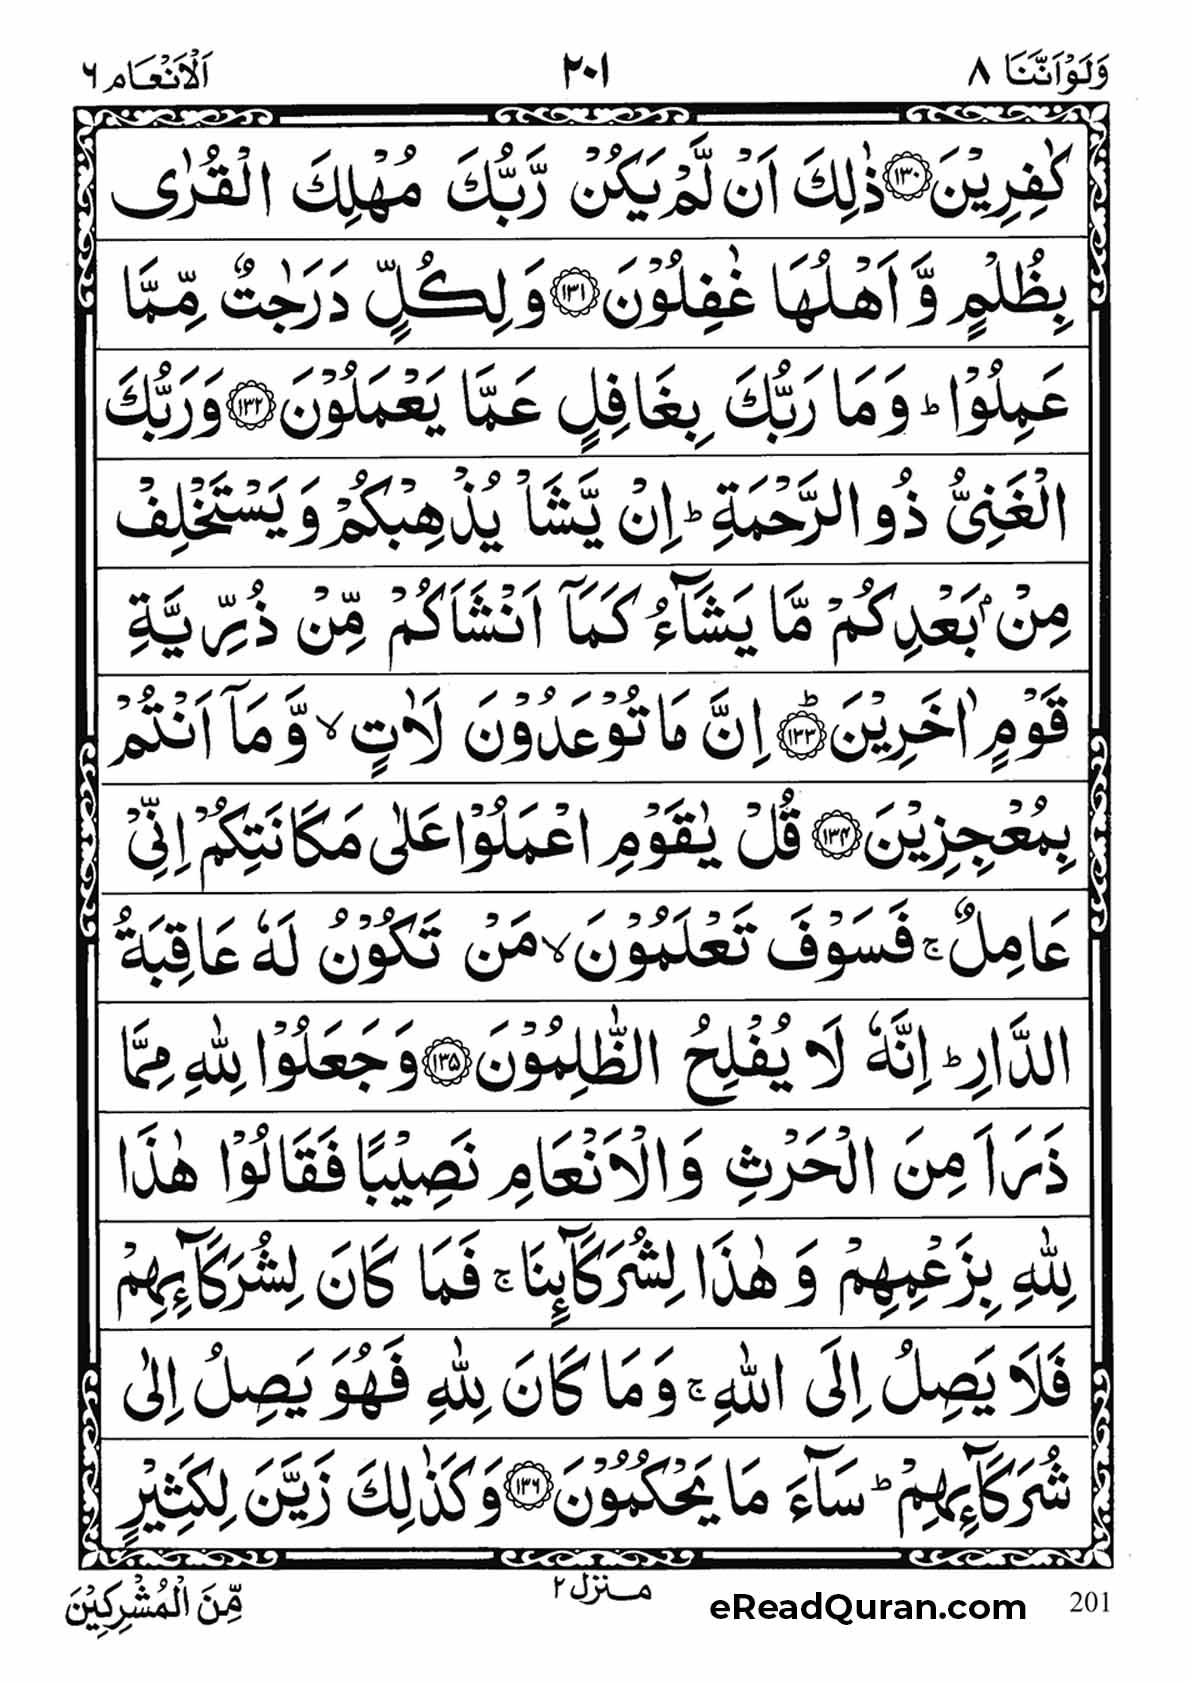 وَلَوْ اَنَّنَا ٨
٢٠١
اَلْاَنْعَام ٦
كٰفِرِيْنَ ﴿١٣٠﴾ ذٰلِكَ اَنْ لَّمْ يَكُنْ رَّبُّكَ مُهْلِكَ الْقُرٰى
بِظُلْمٍ وَّ اَهْلُهَا غٰفِلُوْنَ ﴿١٣١﴾ وَ لِكُلٍّ دَرَجٰتٌ مِّمَّا
عَمِلُوْا ؕ وَ مَا رَبُّكَ بِغَافِلٍ عَمَّا يَعْمَلُوْنَ ﴿١٣٢﴾ وَ رَبُّكَ
الْغَنِىُّ ذُو الرَّحْمَةِ ؕ اِنْ يَّشَاْ يُذْهِبْكُمْ وَ يَسْتَخْلِفْ
مِنْۢ بَعْدِكُمْ مَّا يَشَآءُ كَمَاۤ اَنْشَاَكُمْ مِّنْ ذُرِّيَّةِ
قَوْمٍ اٰخَرِيْنَ ؕ﴿١٣٣﴾ اِنَّ مَا تُوْعَدُوْنَ لَاٰتٍ ۙ وَّ مَاۤ اَنْتُمْ
بِمُعْجِزِيْنَ ﴿١٣٤﴾ قُلْ يٰقَوْمِ اعْمَلُوْا عَلٰى مَكَانَتِكُمْ اِنِّىْ
عَامِلٌ ۚ فَسَوْفَ تَعْلَمُوْنَ ۙ مَنْ تَكُوْنُ لَهٗ عَاقِبَةُ
الدَّارِ ؕ اِنَّهٗ لَا يُفْلِحُ الظّٰلِمُوْنَ ﴿١٣٥﴾ وَ جَعَلُوْا لِلّٰهِ مِمَّا
ذَرَاَ مِنَ الْحَرْثِ وَ الْاَنْعَامِ نَصِيْبًا فَقَالُوْا هٰذَا
لِلّٰهِ بِزَعْمِهِمْ وَ هٰذَا لِشُرَكَآئِنَا ۚ فَمَا كَانَ لِشُرَكَآئِهِمْ
فَلَا يَصِلُ اِلَى اللّٰهِ ۚ وَ مَا كَانَ لِلّٰهِ فَهُوَ يَصِلُ اِلٰى
شُرَكَآئِهِمْ ؕ سَآءَ مَا يَحْكُمُوْنَ ﴿١٣٦﴾ وَ كَذٰلِكَ زَيَّنَ لِكَثِيْرٍ
مِّنَ الْمُشْرِكِيْنَ
منزل ٢
eReadQuran.com
201